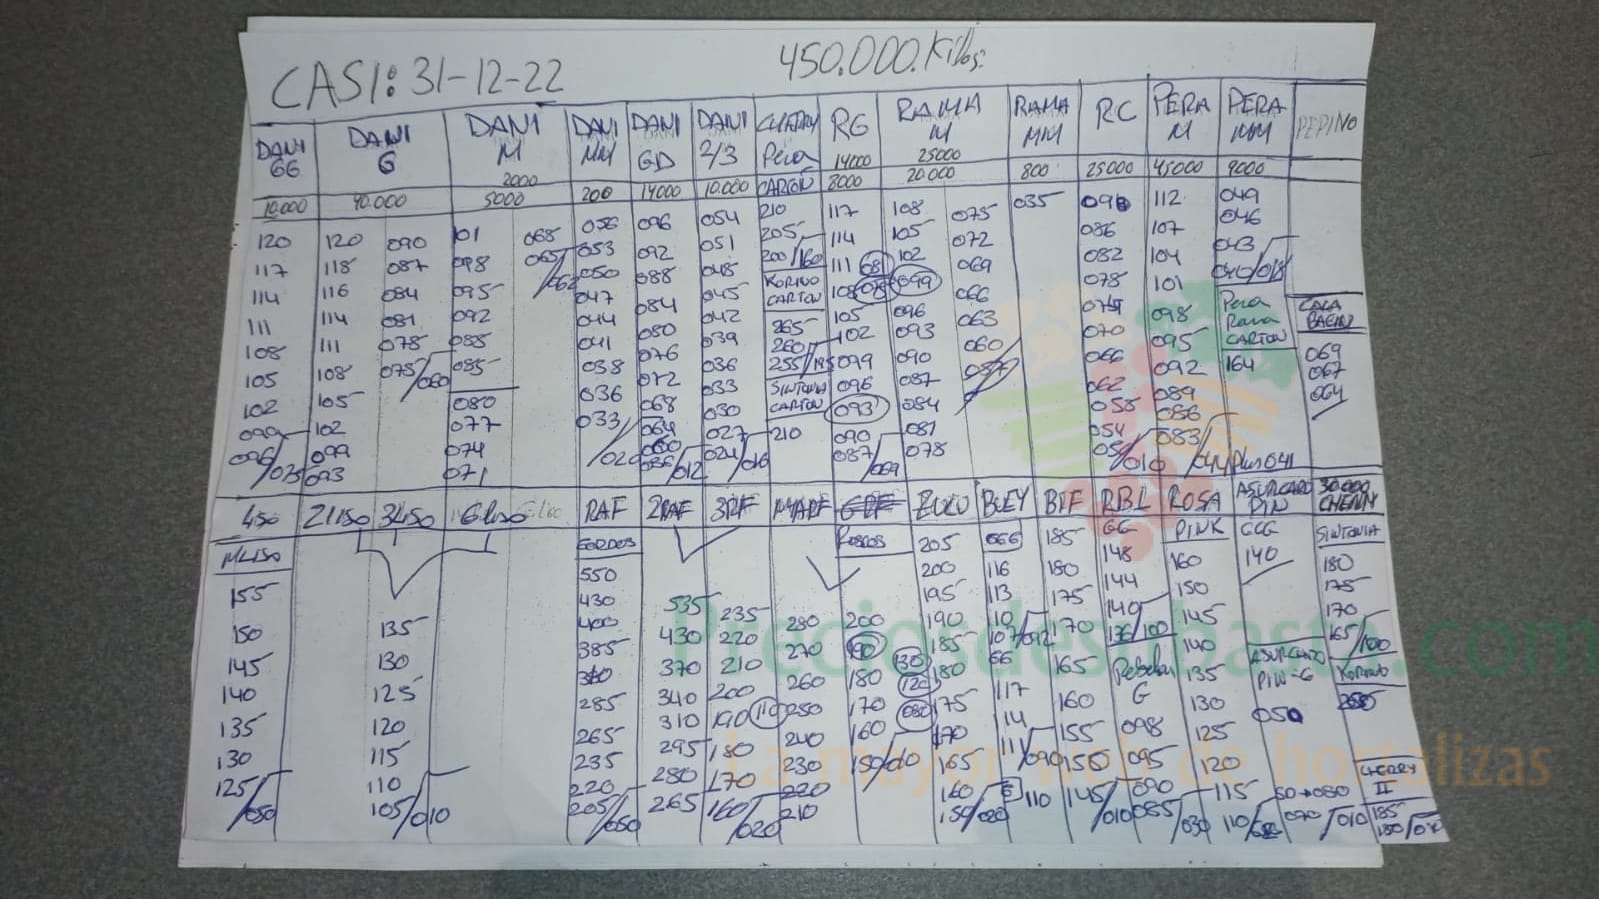 CASI: 31-12-22
450.000.Kilos:
DANI GG
DANI G
DANI M
DANI MM
DANI GD
DANI 2/3
Pera
RG
RAMA M
RAMA MM
RC
PERA M
PERA MM
PEPINO
2000
14000
25000
10.000
40.000
5000
200
14000
10.000
CARTON
8000
20.000
800
25000
45000
9000
120
117
114
111
108
105
102
099
096/025
120
118
116
114
111
108
105
102
099
093
090
087
084
081
078
075/060
101
098
095
092
088
085
080
077
074
071
068
065
062
056
053
050
047
044
041
038
036
033/020
096
092
088
084
080
076
072
068
064
060
056/012
054
051
048
045
042
039
036
033
030
027
024/016
210
205
200/160
KORINO
CARTON
265
260
255/195
SINTONIA
CARTON
210
117
114
111
108
105
102
099
096
093
090
087/069
108
105
102
099
096
093
090
087
084
081
078
075
072
069
066
063
060
035
090
086
082
078
070
066
062
058
054
112
107
104
101
098
095
092
089
086
083/044
049
046
043
040/018
Pera
Rama
CARTON
164
Plus 041
069
067
064
LISO
2LISO
3LISO
GLISO
RAF
2RAF
3RF
ZOCO
BUEY
BTF
RBL
ROSA
ASURCADO
PIN
30.000
CHERRY
MLISO
155
150
145
140
135
130
125/050
135
130
125
120
115
110
105/010
GORDOS
550
430
400
385
340
285
265
235
220
205/050
535
430
370
340
310
295
280
265
235
220
210
200
190
110
180
170
160/020
280
270
260
250
240
230
220
210
ROSCOS
200
190
180
170
160
150/010
130
120
080
205
200
195
190
185
180
175
170
165
160
150/020
GGG
116
113
110
107/092
GG
117
114
111/090
G
110
185
180
175
170
165
160
155
150
145/010
GG
148
144
140
136/100
Rebelion
G
098
095
090
085/030
PINK
160
150
145
140
135
130
125
120
115
110
GGG
140
ASURCADO
PIN-G
050
50→080
070/010
SINTONIA
180
175
170
165/100
KORINO
CHERRY
II
185
180
Preciosdesubasta.com
La mayor web de hortalizas